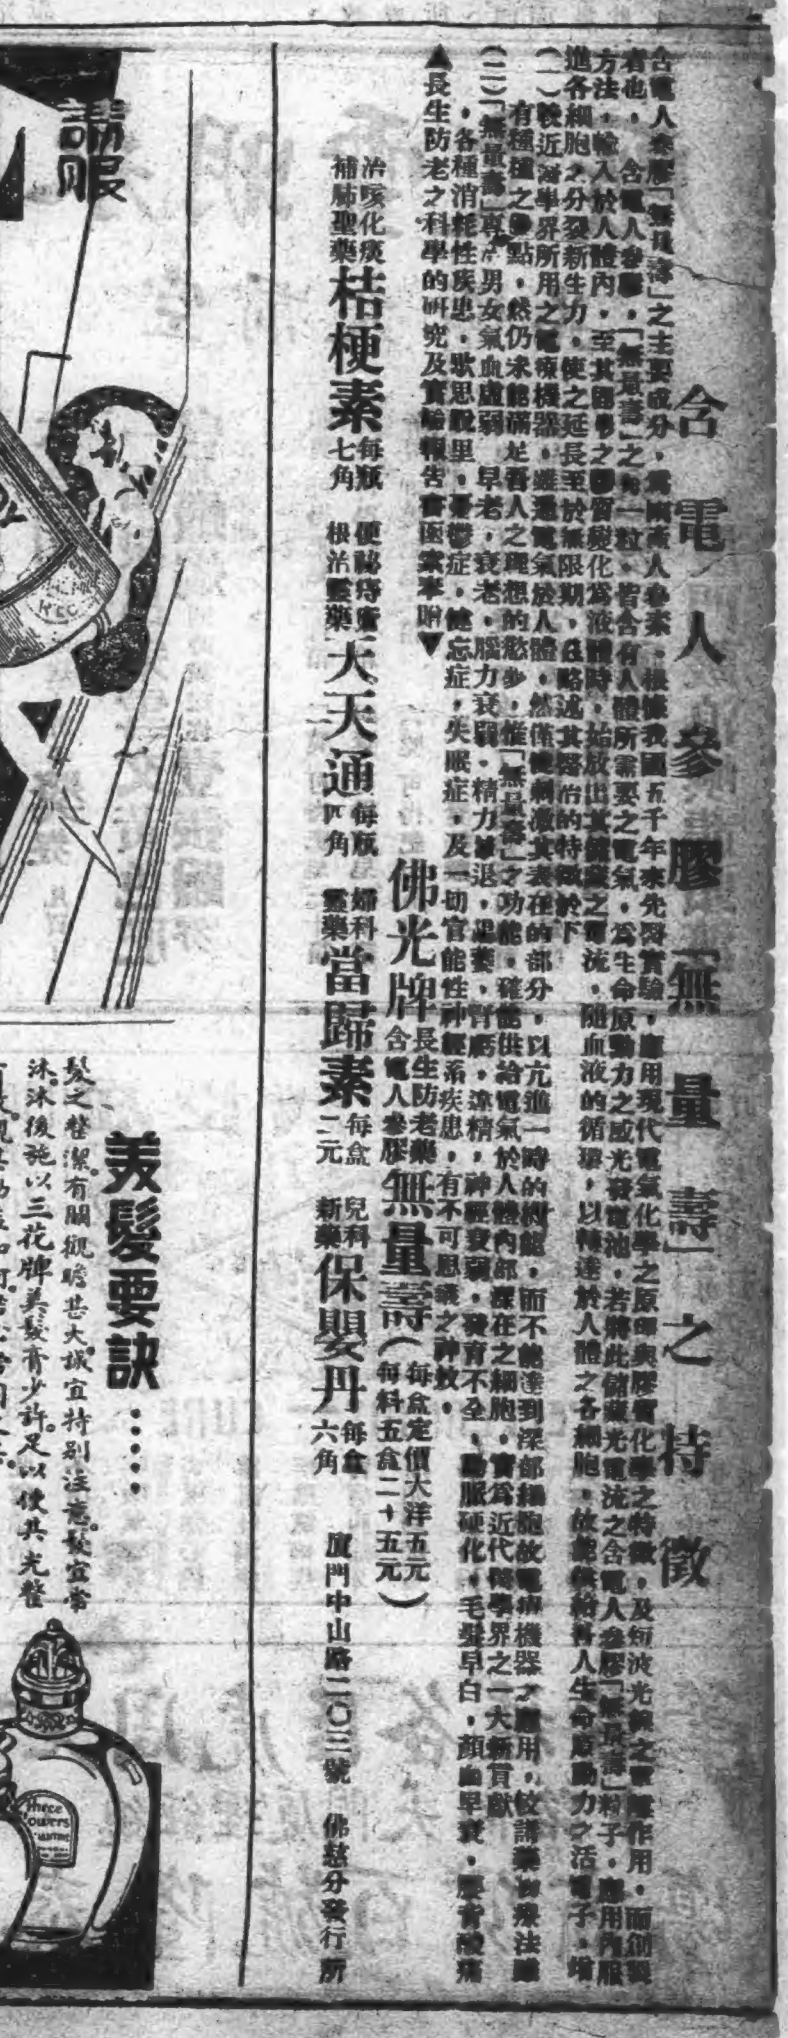 含電人參膠「無量壽」之特徵
含電人參膠「無量壽」之主要成分,為國產人參素,根據我國五千年來先醫實驗,應用現代電氣化學之原理與膠質化學之特徵,及短波光線之電離作用,而創製
者也,含電人參膠,「無量壽」之每一粒,皆含有人體所需要之電氣,為生命原動力之感光發電池,若將此儲藏光電流之含電人參膠「無量壽」粒子,應用內服
方法,輸入於人體內,至其固形之膠質變化為液體時,始放出其儲藏之電流,隨血液的循環,以轉達於人體之各細胞,故能供給吾人生命原動力之活電子,增
進各細胞之分裂新生力,使之延長至於無限期,茲略述其醫治的特徵於下
(一)較近醫學界所用之電療機器,雖通電氣於人體,然僅能刺激其表在的部分,以亢進一時的機能,而不能達到深部細胞故電療機器之應用,較諸藥物療法雖
有種種之優點,然仍未能滿足吾人之理想的慾步,惟「無量壽」之功能,確能供給電氣於人體內部深在之細胞,實為近代醫學界之一大新貢獻
(二)「無量壽」專治男女氣血虛弱,早老,衰老,腦力衰弱,精力減退,陽萎,腎虧,遺精,神經衰弱,發育不全,動脈硬化,毛髮早白,顏面早衰,腰背酸痛
,各種消耗性疾患,歇思脫里,憂鬱症,健忘症,失眠症,及一切官能性神經系疾患,有不可思議之神效,
▲長生防老之科學的研究及實驗報告書函索奉贈▼
佛光牌 長生防老藥 含電人參膠 無量壽(每盒定價大洋五元 每料五盒二十五元)
治咳化痰 補肺聖藥 桔梗素 每瓶七角
便祕痔瘡 根治靈藥 大天通 每瓶四角
婦科靈藥 當歸素 每盒二元
兒科新藥 保嬰丹 每盒六角
廈門中山路二〇三號 佛慈分發行所
請服
美髮要訣……
髮之整潔有關觀瞻甚大誠宜特別注意髮宜常
沐沐後施以三花牌美髮膏少許足以使其光整
three